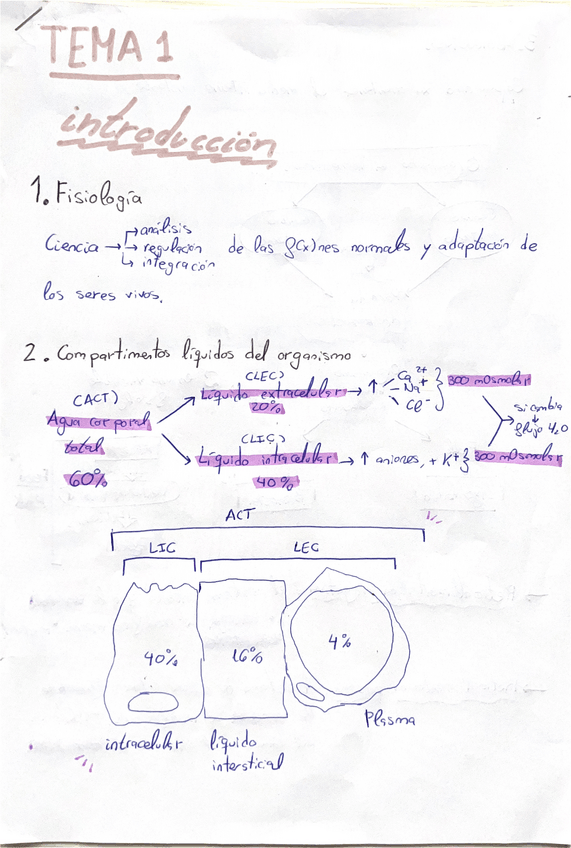 TEMA 1
introducción
1. Fisiología
Ciencia → análisis
→ regulación de las f(x)nes normales y adaptación de
↳ integración
los seres vivos.
2. Compartimentos líquidos del organismo
(ACT)
Agua corporal
total
60%
(LEC)
Líquido extracelular → ↑ Ca²⁺
20%
Na⁺
Cl⁻
} 300 mOsmolar
(LIC)
Líquido intracelular → ↑ aniones, + K⁺} 300 mOsmolar
40%
si cambia
↓
flujo H₂O
ACT
LIC LEC
40% 16% 4%
Plasma
intracelular líquido
intersticial